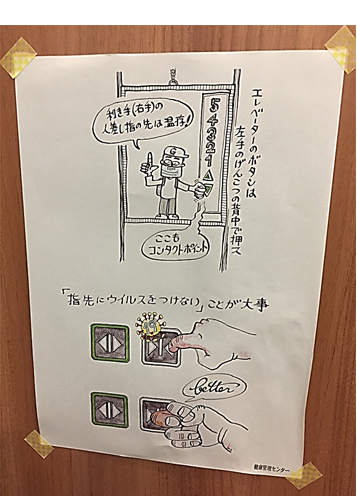 エレベーターのボタンは
左手のげんこつの背中で押ス
利き手(右手)の
人差し指の先は温存!
5
4
3
2
1
ここも
コンタクトポイント
「指先にウイルスをつけない」ことが大事
better
健康管理センター